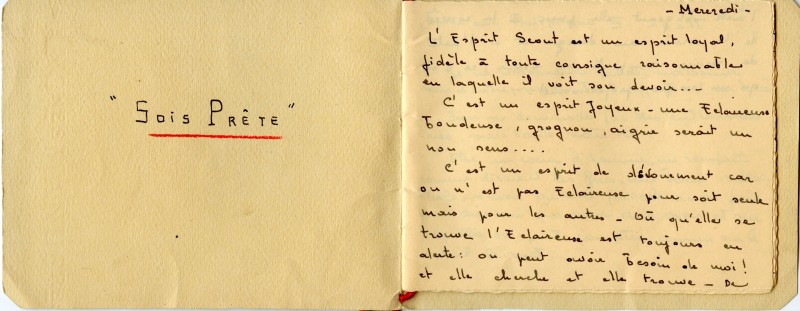 "Sois Prête"
- Mercredi -
L'Esprit Scout est un esprit loyal,
fidèle à toute consigne raisonnable
en laquelle il voit son devoir...-
C'est un esprit Joyeux - une Eclaireuse
boudeuse, grognon, aigrie serait un
non sens....
C'est un esprit de dévouement car
on n'est pas Eclaireuse pour soit seule
mais pour les autres - Où qu'elle se
trouve l'Eclaireuse est toujours en
alerte : on peut avoir besoin de moi !
et elle cherche et elle trouve - De